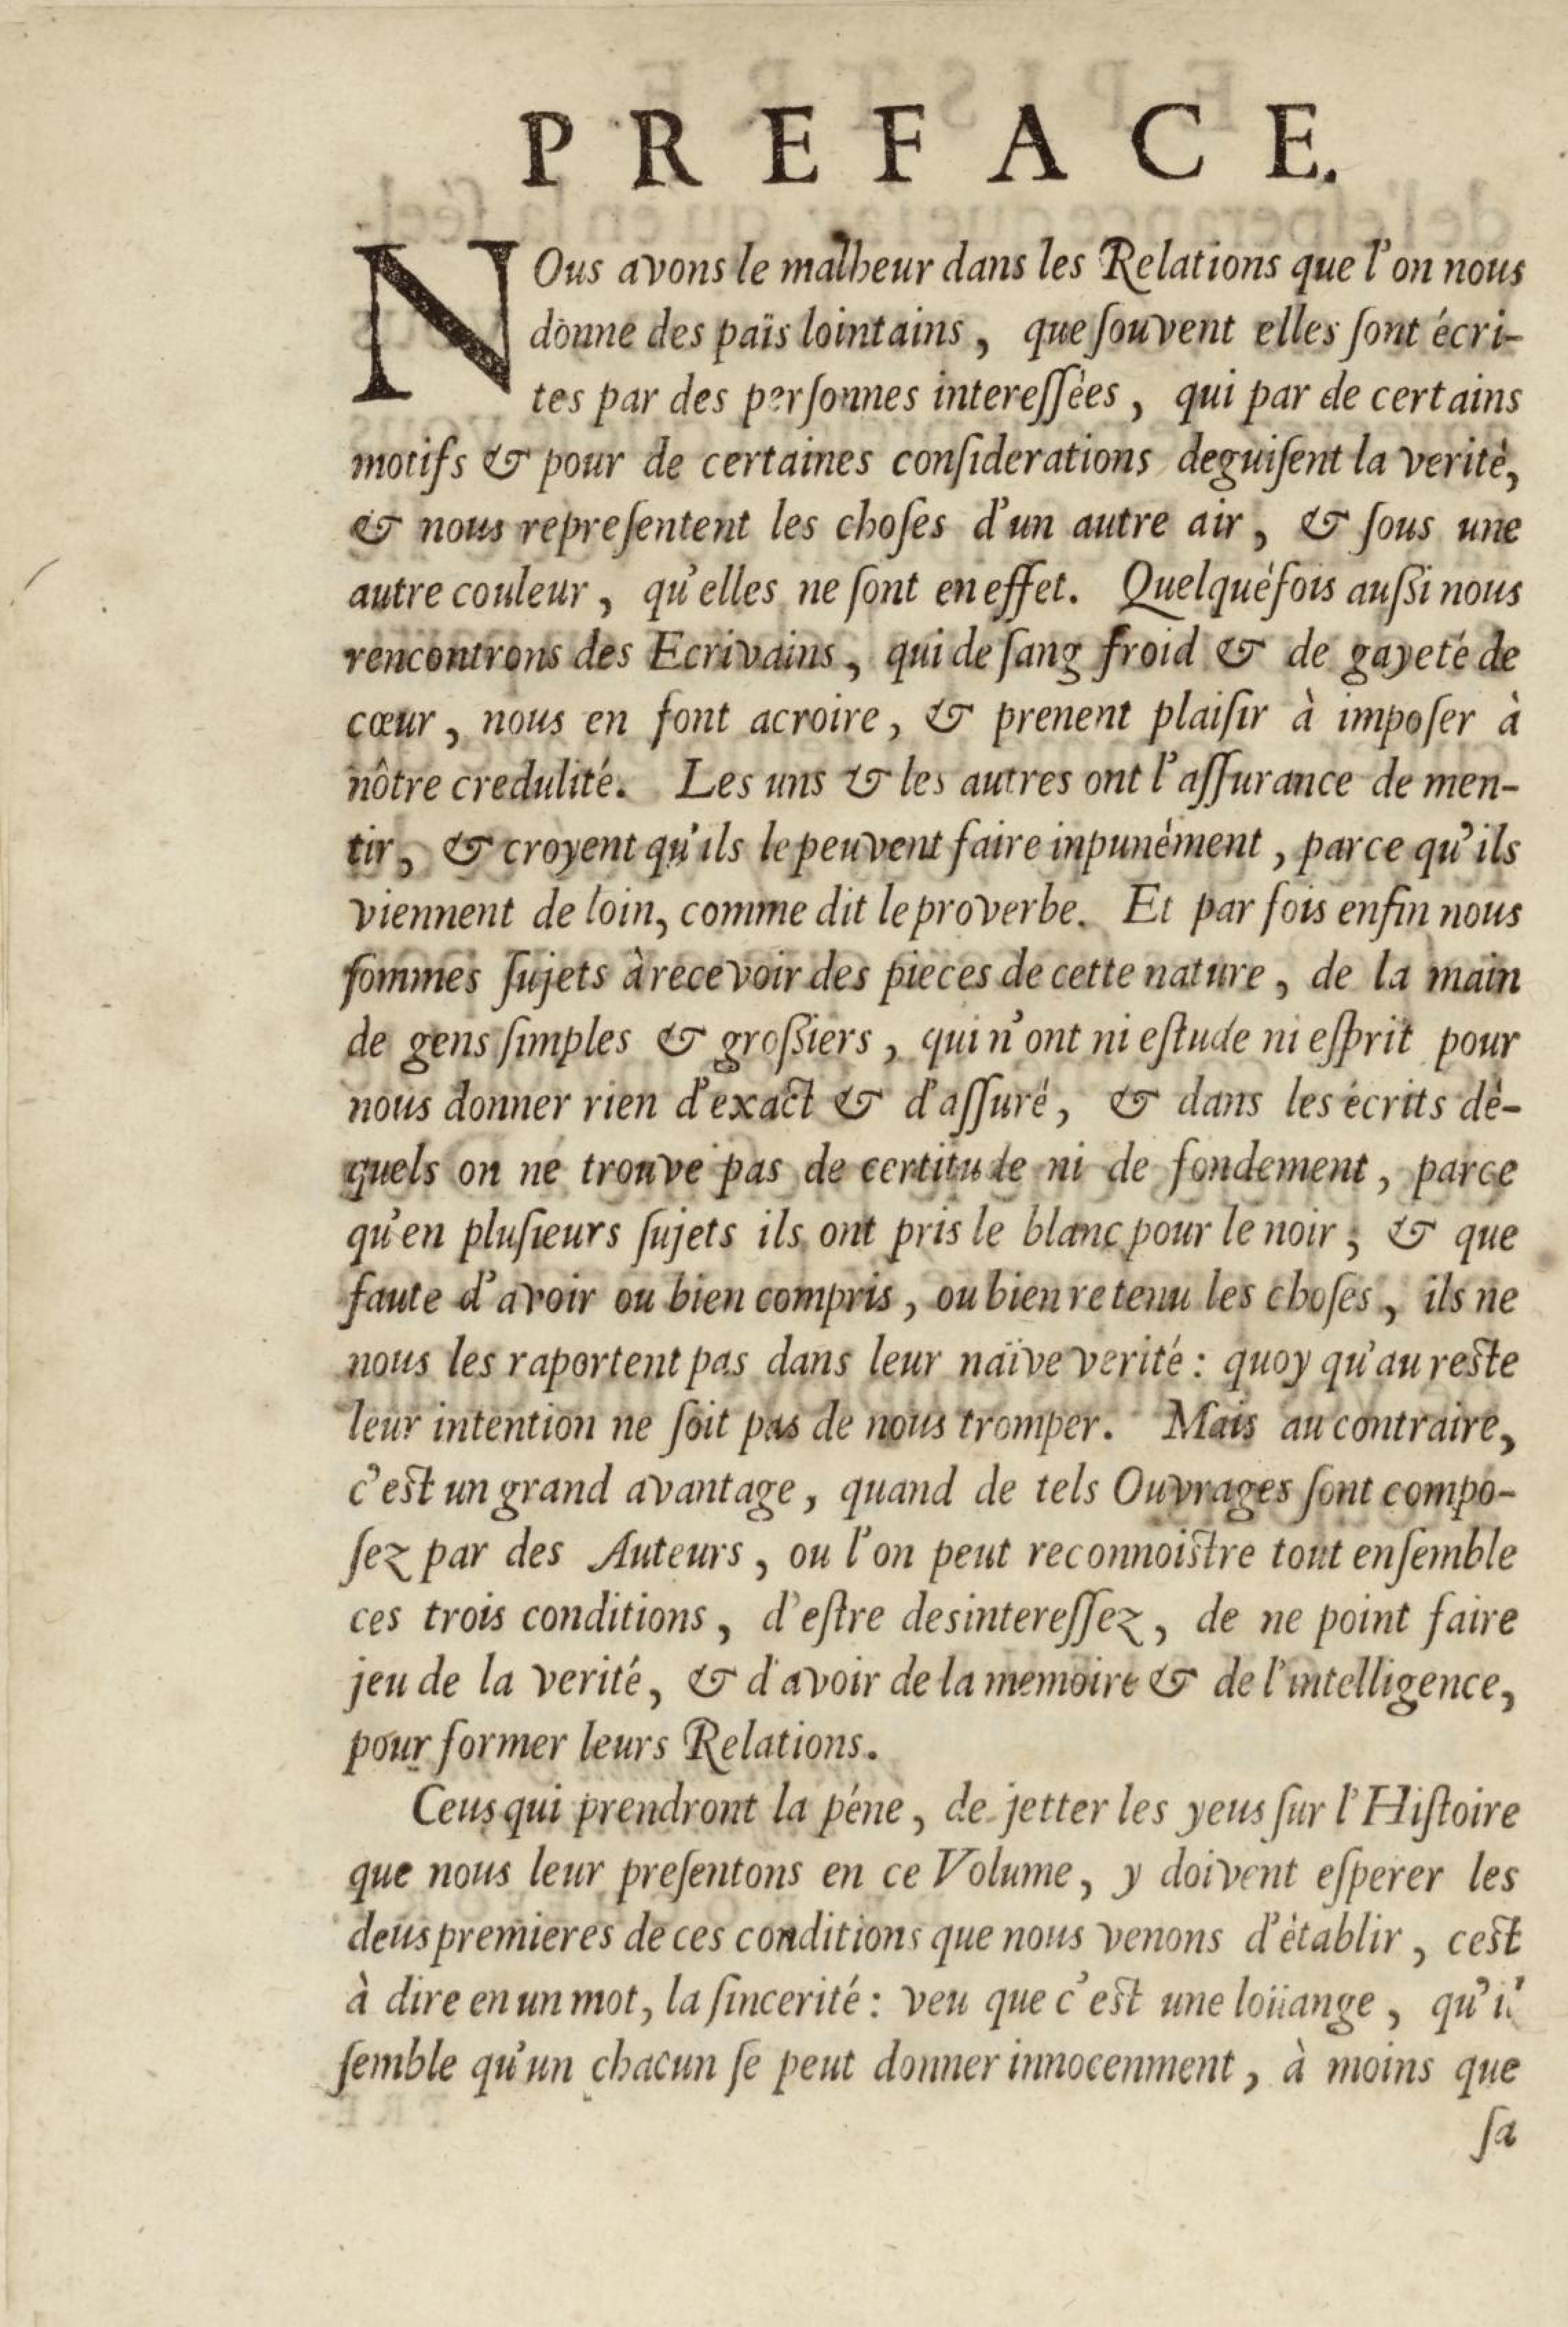 PREFACE.
NOus avons le malheur dans les Relations que l'on nous
donne des païs lointains, que ſouvent elles ſont écri-
tes par des perſonnes intereſſèes, qui par de certains
motifs & pour de certaines conſiderations deguiſent la veritè,
& nous repreſentent les choſes d'un autre air, & ſous une
autre couleur, qu'elles ne ſont en effet. Quelquéfois auſſi nous
rencontrons des Ecrivains, qui de ſang froid & de gayeté de
cœur, nous en font acroire, & prenent plaiſir à impoſer à
nôtre credulité. Les uns & les autres ont l'aſſurance de men-
tir, & croyent qu'ils le peuvent faire inpunèment, parce qu'ils
viennent de loin, comme dit le proverbe. Et par fois enfin nous
ſommes ſujets à recevoir des pieces de cette nature, de la main
de gens ſimples & groſſiers, qui n'ont ni eſtude ni eſprit pour
nous donner rien d'exact & d'aſſuré, & dans les écrits dè-
quels on ne trouve pas de certitude ni de fondement, parce
qu'en pluſieurs ſujets ils ont pris le blanc pour le noir; & que
faute d'avoir ou bien compris, ou bien retenu les choſes, ils ne
nous les raportent pas dans leur naïve verité: quoy qu'au reſte
leur intention ne ſoit pas de nous tromper. Mais au contraire,
c'eſt un grand avantage, quand de tels Ouvrages ſont compo-
ſez par des Auteurs, ou l'on peut reconnoiſtre tout enſemble
ces trois conditions, d'eſtre desintereſſez, de ne point faire
jeu de la verité, & d'avoir de la memoire & de l'intelligence,
pour former leurs Relations.
Ceus qui prendront la péne, de jetter les yeus ſur l'Hiſtoire
que nous leur preſentons en ce Volume, y doivent eſperer les
deus premieres de ces conditions que nous venons d'ètablir, ceſt
à dire en un mot, la ſincerité: veu que c'eſt une loüange, qu'il
ſemble qu'un chacun ſe peut donner innocenment, à moins que
ſa